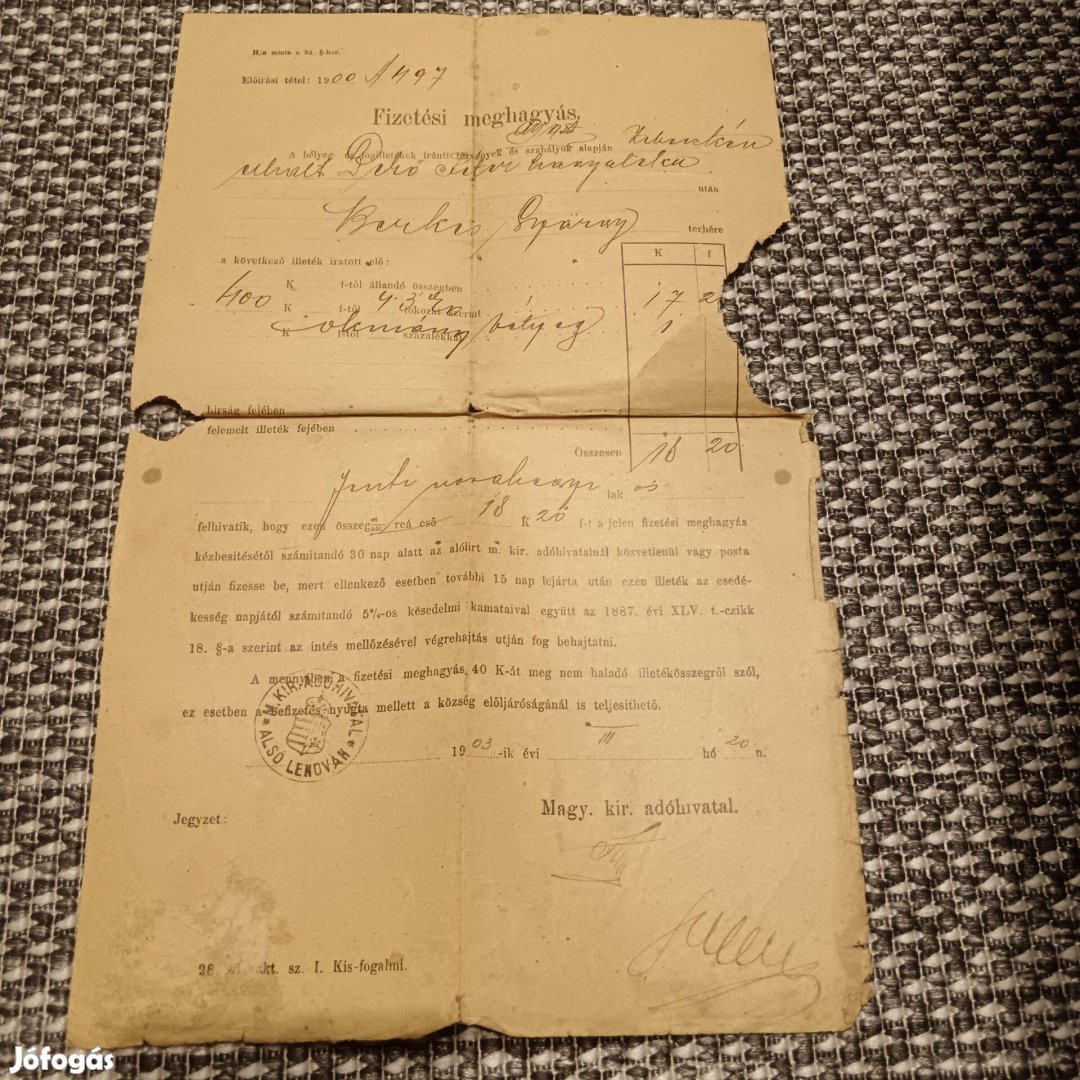 H/a minta a 94. §-hoz.
Előirási tétel: 1900 A 497
Fizetési meghagyás.
A bélyeg- és jogilletékek iránti törvények és szabályok alapján
elhalt Pető Péter hagyatéka
után
Berkes György
terhére
K f
a következő illeték iratott elő:
K f-tól állandó összegben
400 K f-tól 4.3 fokozat szerint 17 20
K f-tól százalékkal okmány bélyeg 1
birság fejében
felemelt illeték fejében
Összesen 18 20
lak os
felhivatik, hogy ezen összeget reá eső 18 K 20 f-t a jelen fizetési meghagyás
kézbesitésétől számitandó 30 nap alatt az alólirt m. kir. adóhivatalnál közvetlenül vagy posta
utján fizesse be, mert ellenkező esetben további 15 nap lejárta után ezen illeték az esedé-
kesség napjától számitandó 5%-os késedelmi kamataival együtt az 1887. évi XLV. t.-czikk
18. §-a szerint az intés mellőzésével végrehajtás utján fog behajtatni.
A mennyiben a fizetési meghagyás 40 K-át meg nem haladó illetékösszegről szól,
ez esetben a befizetés nyugta mellett a község előljáróságánál is teljesithető.
M. KIR. ADÓHIVATAL
ALSÓ LENDVÁN
1903-ik évi III hó 20 n.
Magy. kir. adóhivatal.
Jegyzet:
28. sz. I. Kis-fogalmi.
Jófogás